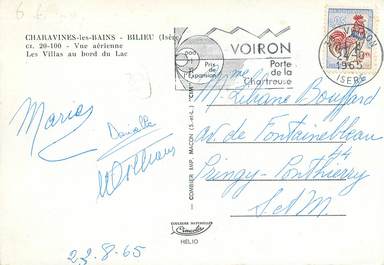 CHARAVINES-les-BAINS - BILIEU (Isère)
cr. 20-100 - Vue aérienne
Les Villas au bord du Lac
VOIRON
Prix de l'Expansion
Porte de la Chartreuse
VOIRON
1965
ISÈRE
Mme Liliane Bouffard
Av. de Fontainebleau
Pringy-Ponthierry
S et M.
Danielle
22.8.65
COMBIER IMP. MACON (S.-et-L.) "CIM"
COULEURS NATURELLES
Cimcolor
HELIO